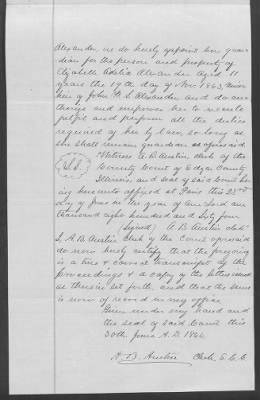 Alexander, we do hereby appoint her guar
dian for the person and property of
Elizabeth Adelia Alexander aged 11
years the 17th day of Nov 1863, minor
heir of John W. S. Alexander and do au
thorize and empower her to execute
fulfil and perform all the duties
required of her by law, so long as
she shall remain guardian as aforesaid
Witness A. B. Austin clerk of the
County Court of Edgar County
Illinois, and seal of said Court be
ing hereunto affixed at Paris this 23rd
day of June in the year of our Lord one
thousand eight hundred and sixty four
(Signed) A. B. Austin clerk
I, A. B. Austin Clerk of the Court aforesaid
do now hereby certify that the foregoing
is a true & correct transcript of the
proceedings & a copy of the letters issued
as therein set forth, and that the same
is now of record in my office
Given under my hand and
the seal of said Court this
30th June A.D. 1864
A. B. Austin Clerk C.C.C.